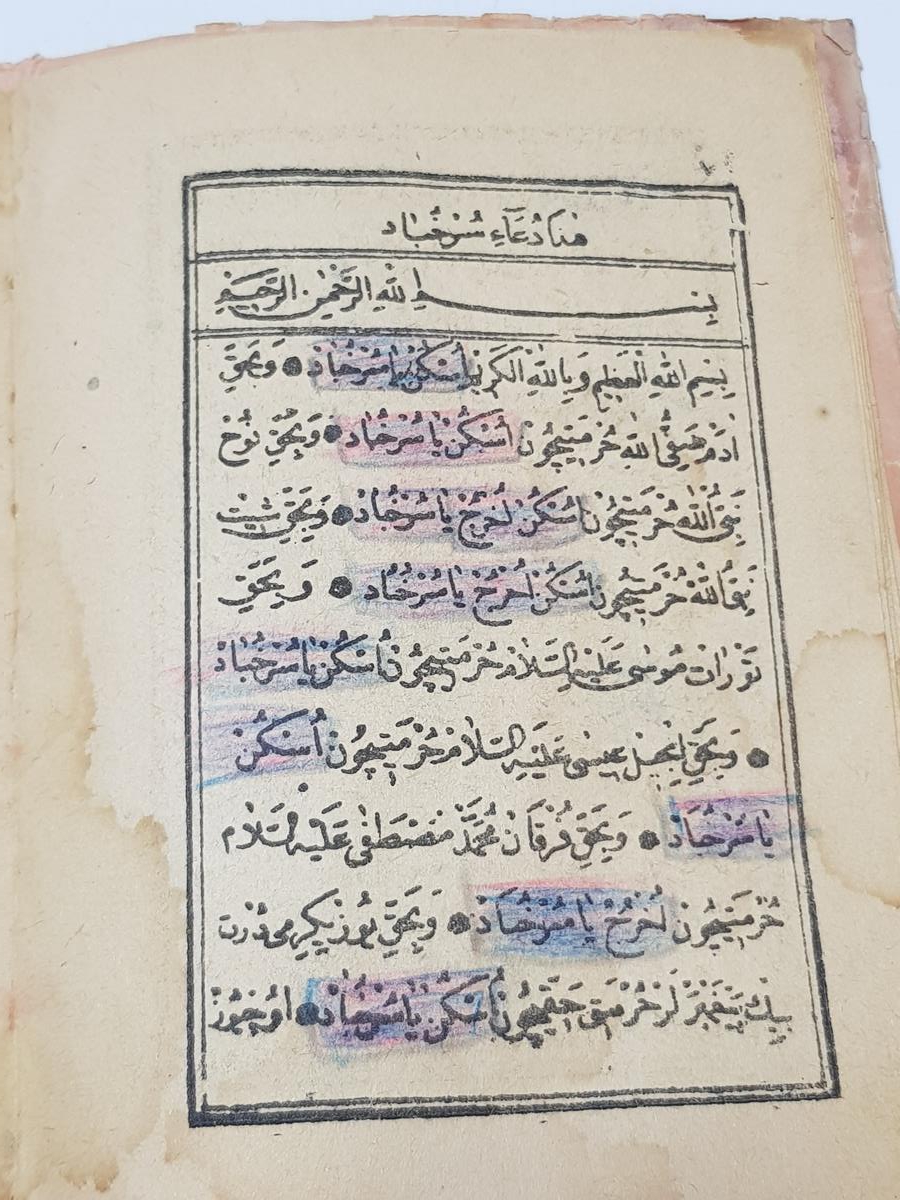 هذا دُعَآءِ سُرْخُبَاد
بِسْــمِ اللهِ الرَّحْمٰنِ الرَّحِيمِ
بِسْمِ اللهِ الْعَظِيمِ وَبِاللهِ الْكَرِيمِ اُسْكُنْ يَا سُرْخُبَادْ ● وَبِحَقِّ
اٰدَمْ صَفِىُّ اللهِ حُرْمَتِيچُونْ اُسْكُنْ يَا سُرْخُبَادْ ● وَبِحَقِّ نُوحْ
نَبِىُّ اللهِ حُرْمَتِيچُونْ اُسْكُنْ اُخْرُجْ يَا سُرْخُبَادْ ● وَبِحَقِّ شِيتْ
نَبِىُّ اللهِ حُرْمَتِيچُونْ اُسْكُنْ اُخْرُجْ يَا سُرْخُبَادْ ● وَبِحَقِّ
تَوْرَاتْ مُوسٰى عَلَيْهِ السَّلَامْ حُرْمَتِيچُونْ اُسْكُنْ يَا سُرْخُبَادْ
● وَبِحَقِّ اِنْجِيلْ عِيسٰى عَلَيْهِ السَّلَامْ حُرْمَتِيچُونْ اُسْكُنْ
يَا سُرْخُبَادْ ● وَبِحَقِّ فُرْقَانْ مُحَمَّدْ مُصْطَفٰى عَلَيْهِ السَّلَامْ
حُرْمَتِيچُونْ اُخْرُجْ يَا سُرْخُبَادْ ● وَبِحَقِّ يُوزْ يِكِرْمِى دُرْتْ
بِيكْ پَيْغَمْبَرْلَرْ حُرْمَتِى حَقِّيچُونْ اُسْكُنْ يَا سُرْخُبَادْ ● اوچيوز